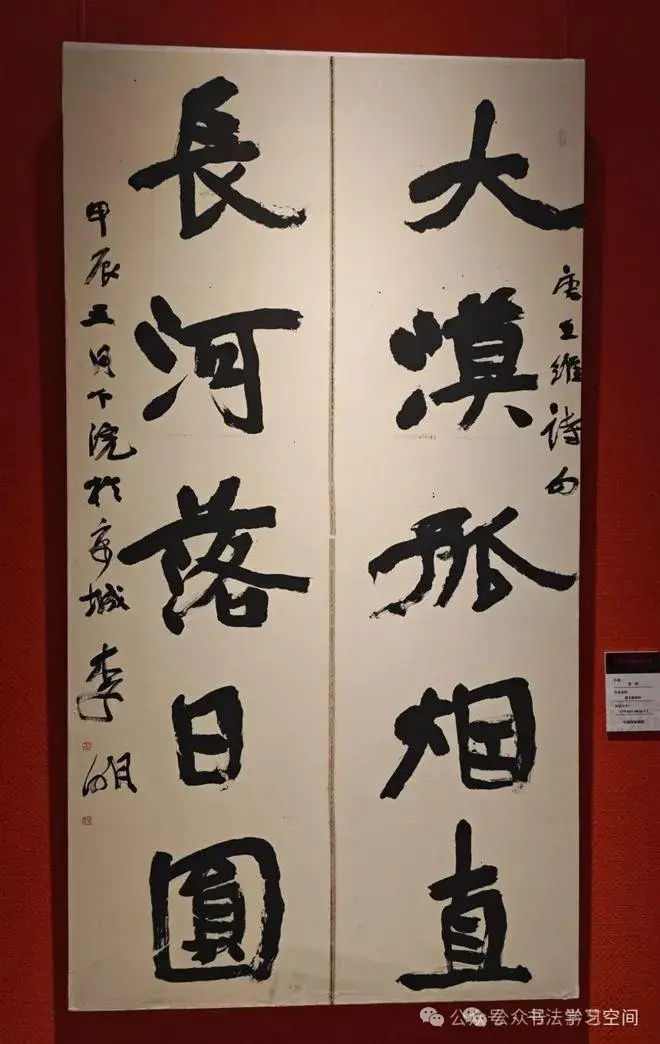 大漠孤烟直
唐王維詩句
長河落日圓
甲辰五月下浣於京城李明
公众号·公众书法学习空间